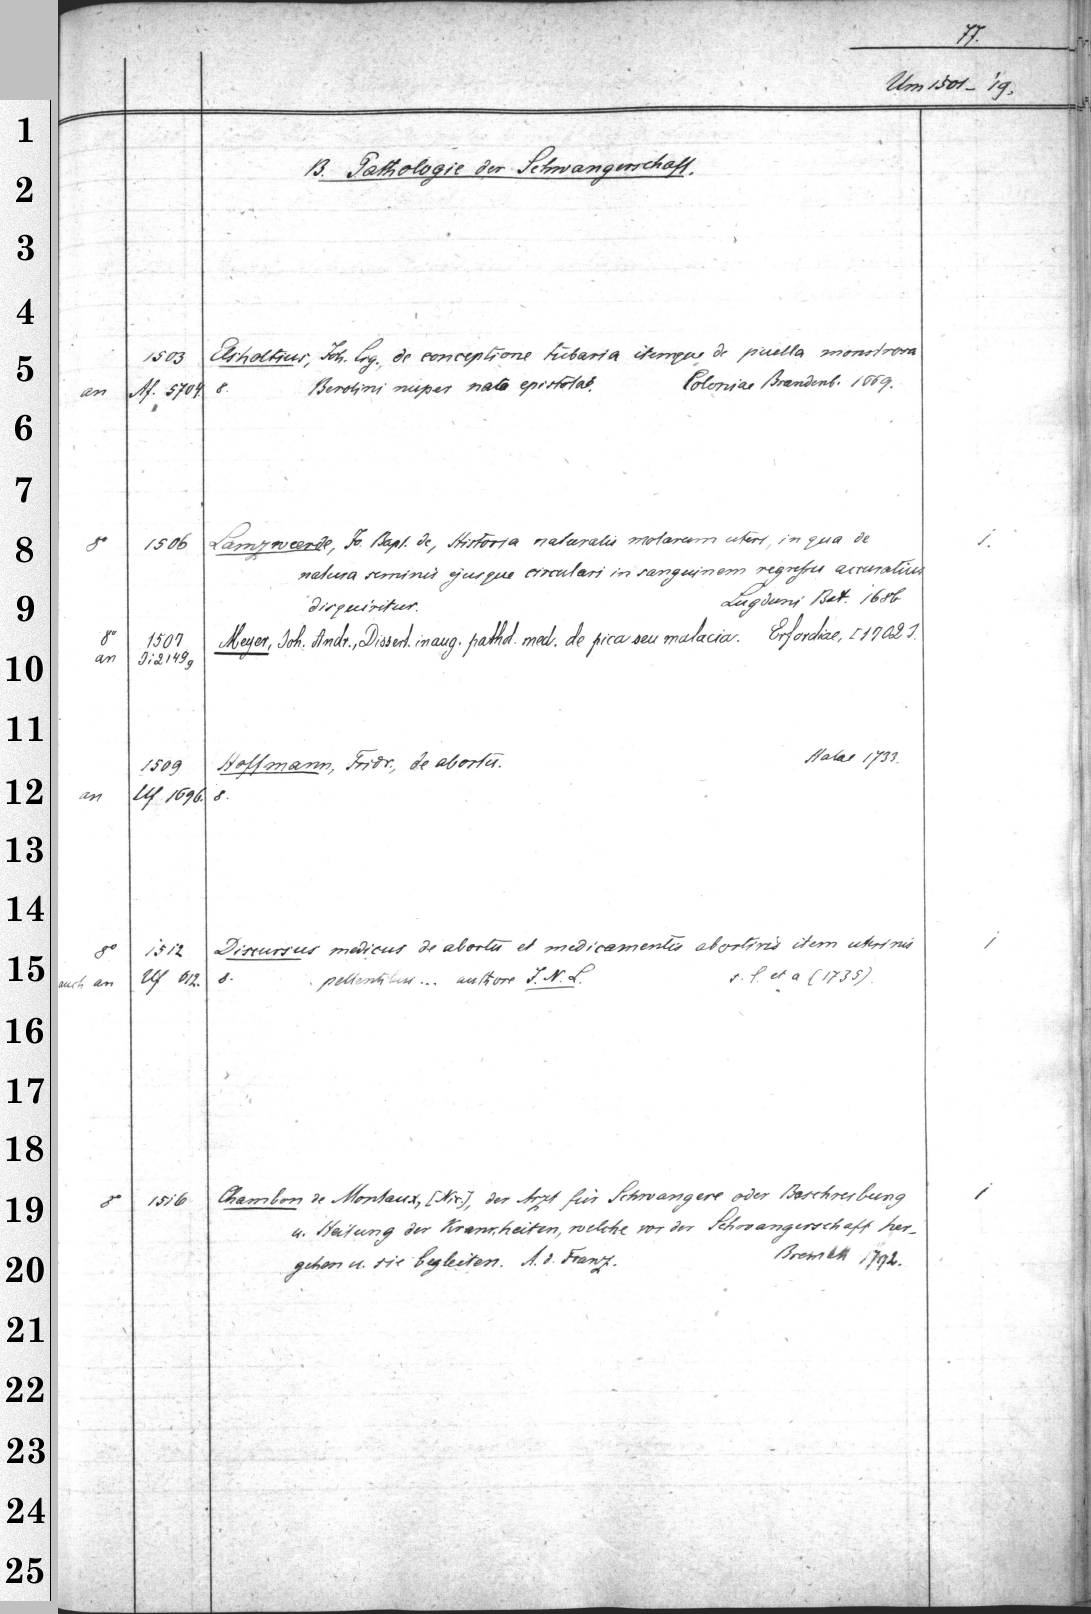 77.
Um 1501-'19.
1
B. Pathologie der Schwangerschaft.
2
3
4
5
1503 Elsholtius, Joh. Sig., de conceptione tubaria itemque de puella monstrosa
an Af. 5704. 8. Berolini nuper nata epistolae. Coloniae Brandenb. 1669.
6
7
8
8° 1506 Lamzweerde, Jo. Bapt. de, Historia naturalis molarum uteri, in qua de 1.
natura seminis ejusque circulari in sanguinem regressu accuratius
9
disquiritur. Lugduni Bat. 1686
8° 1507 Meyer, Joh. Andr., Dissert. inaug. pathol. med. de pica seu malacia. Erfordiae, [1702].
an Ji2149g
10
11
1509 Hoffmann, Fridr., de abortu. Halae 1733.
12
an Uf 1696. 8.
13
14
8° 1512 Discursus medicus de abortu et medicamentis abortivis item uterinis 1
15
auch an Uf 612. 8. pellentibus ... authore J. N. L. s. l. et a (1735).
16
17
18
19
8° 1516 Chambon de Montaux, [Nic.], der Arzt für Schwangere oder Beschreibung 1
u. Heilung der Krankheiten, welche vor der Schwangerschaft her-
20
gehen u. sie begleiten. A. d. Franz. 1792.
21
22
23
24
25